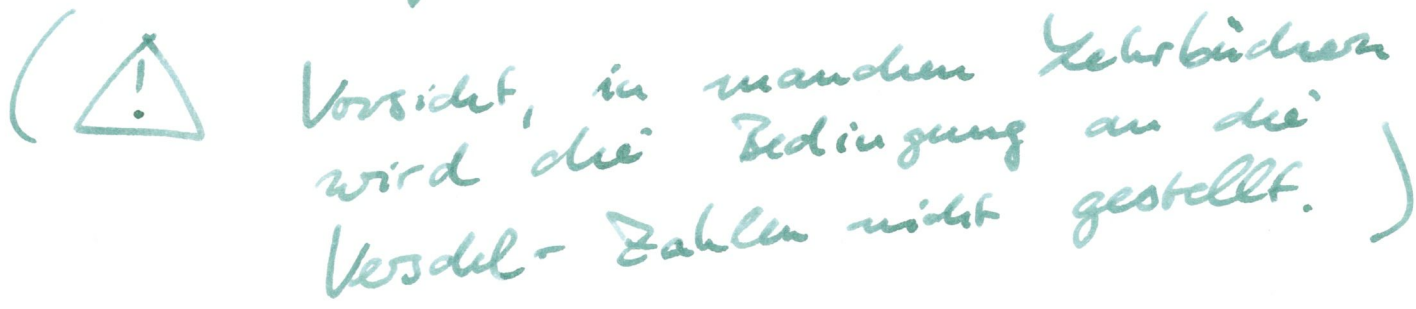 (⚠ Vorsicht, in manchen Lehrbüchern
wird die Bedingung an die
Verschl-Zahlen nicht gestellt.)